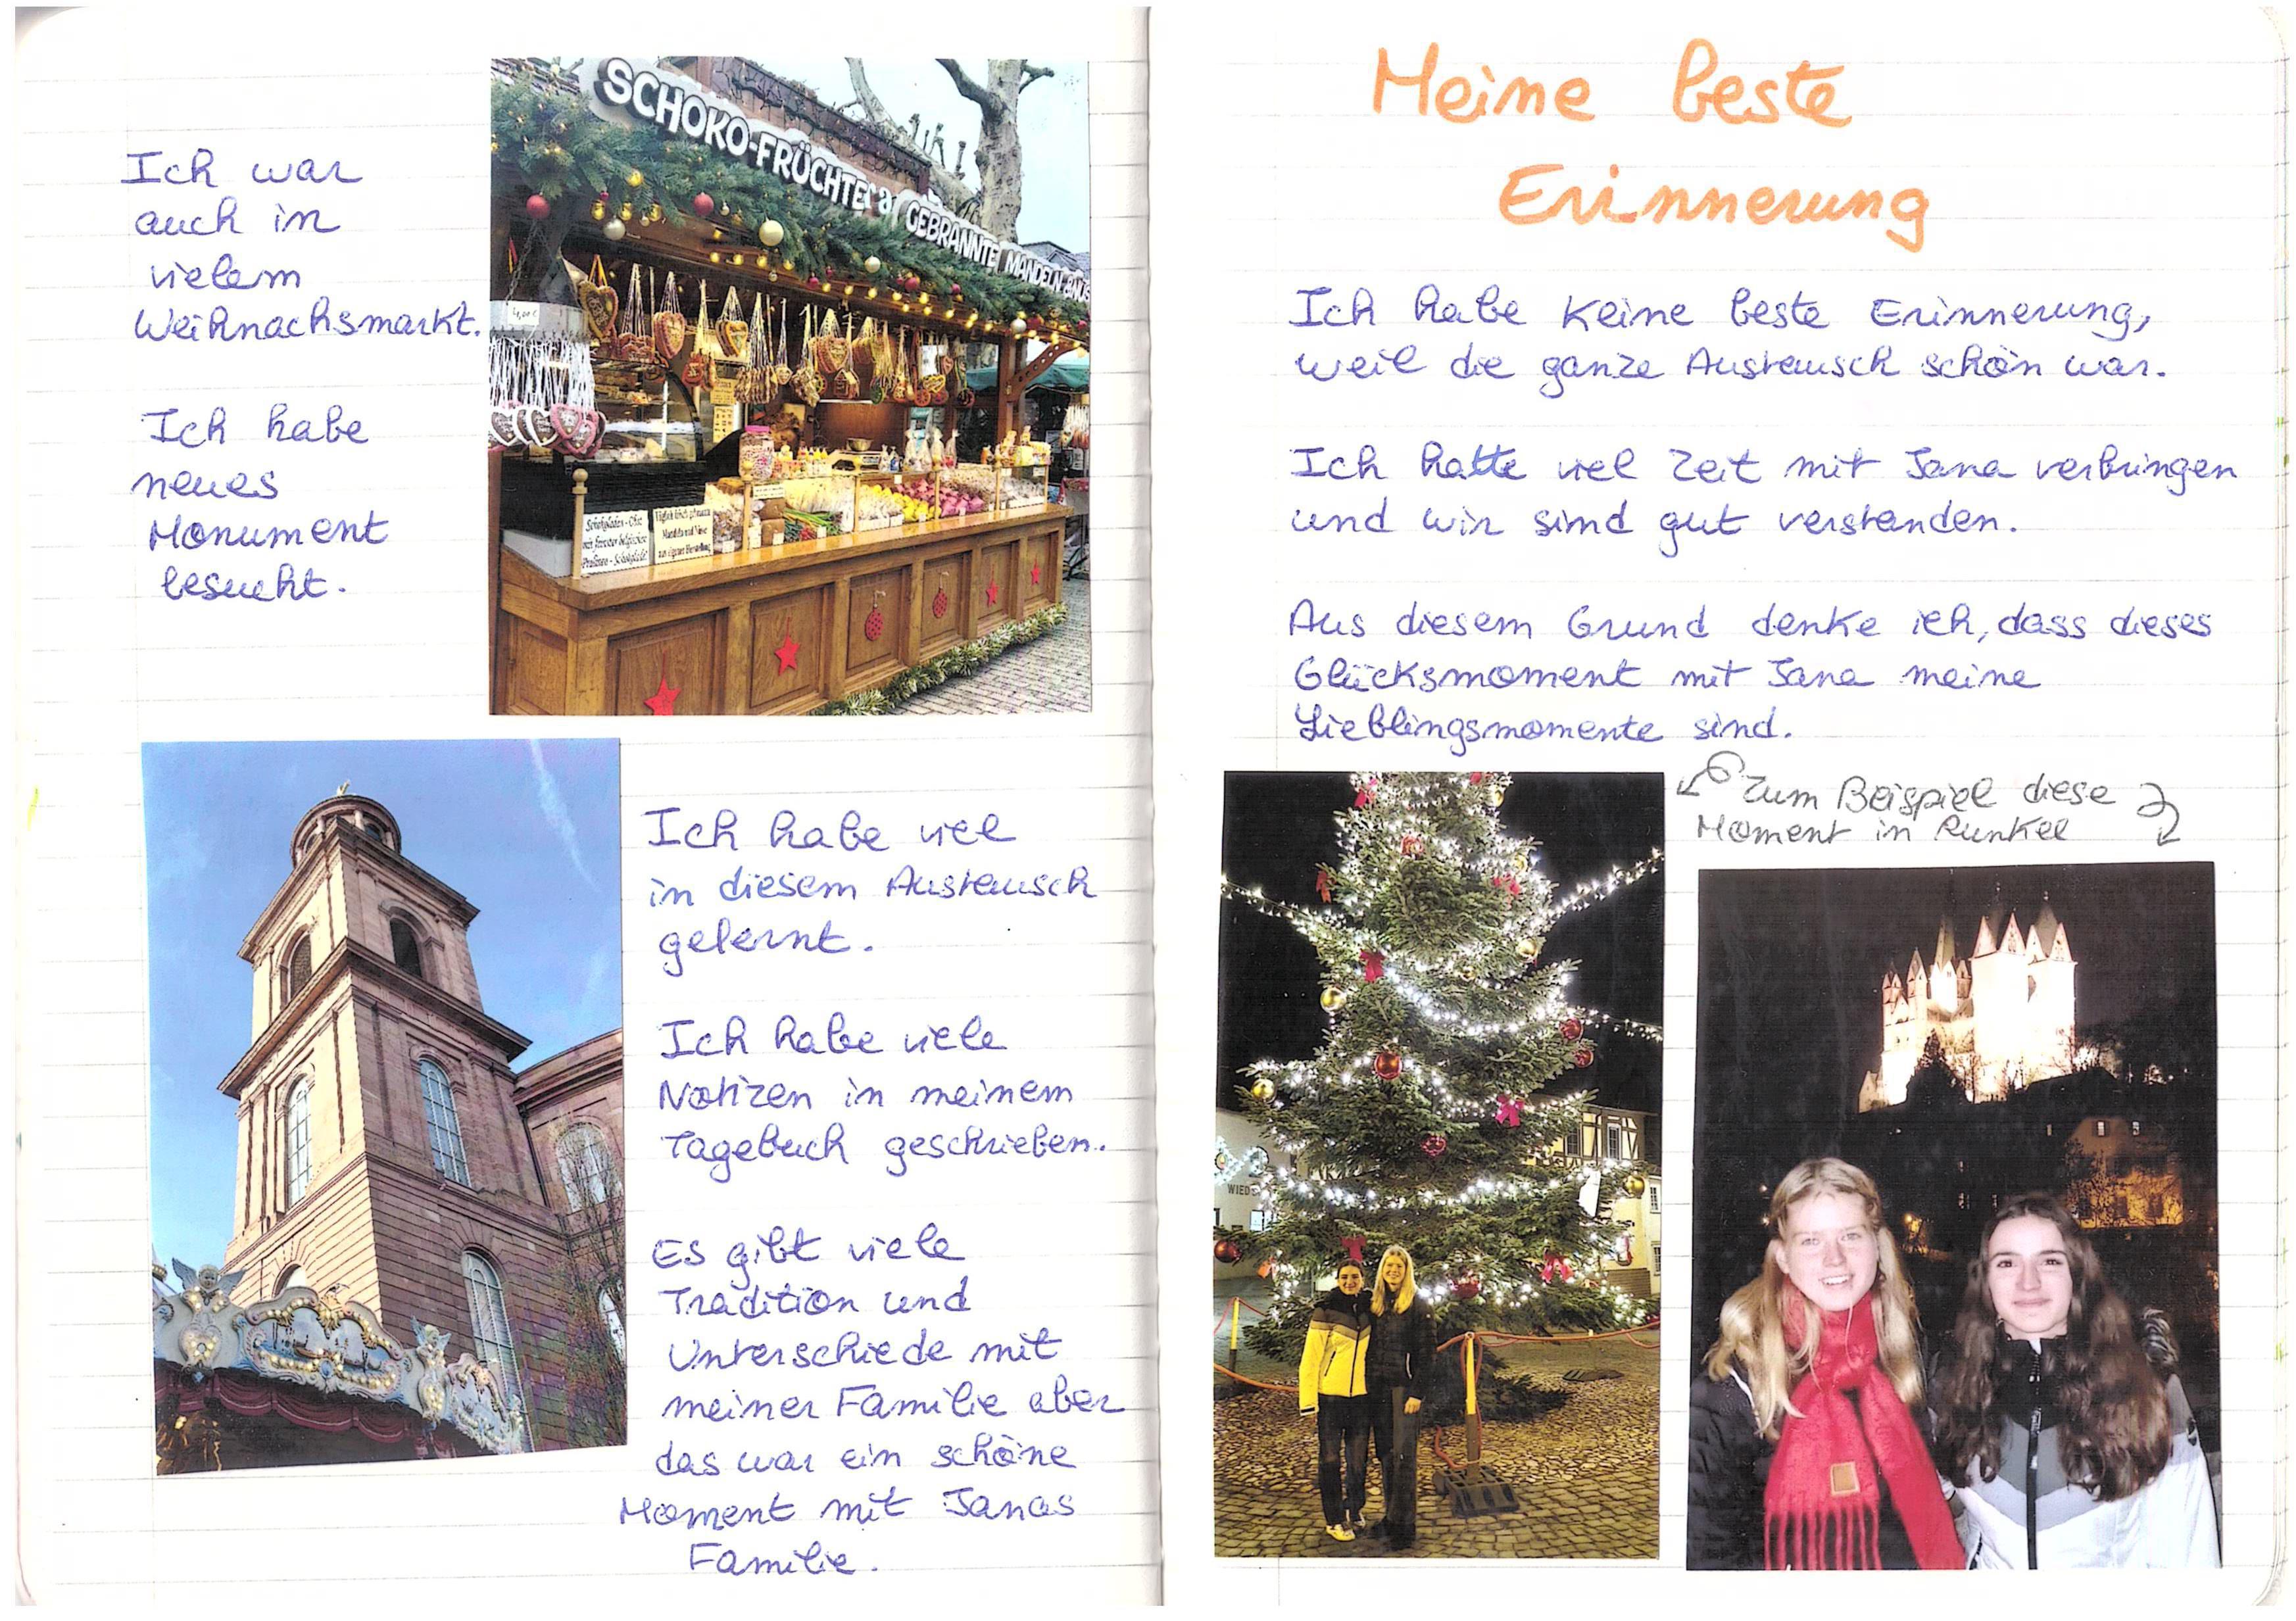 Ich war
auch in
vielem
Weihnachsmarkt.
Ich habe
neues
Monument
besucht.
SCHOKO-FRÜCHTE
GEBRANNTE MANDELN
Schokoladen-Obst
mit feinster belgischer
Pralinen-Schokolade
Mandeln und Nüsse
aus eigener Herstellung
Ich habe viel
in diesem Austausch
gelernt.
Ich habe viele
Notizen in meinem
Tagebuch geschrieben.
Es gibt viele
Tradition und
Unterschiede mit
meiner Familie aber
das war ein schöne
Moment mit Janas
Familie.
Meine beste
Erinnerung
Ich habe keine beste Erinnerung,
weil die ganze Austausch schön war.
Ich hatte viel Zeit mit Jana verbringen
und wir sind gut verstanden.
Aus diesem Grund denke ich, dass dieses
Glücksmoment mit Jana meine
Lieblingsmomente sind.
Zum Beispiel diese
Moment in Runkel
WIED